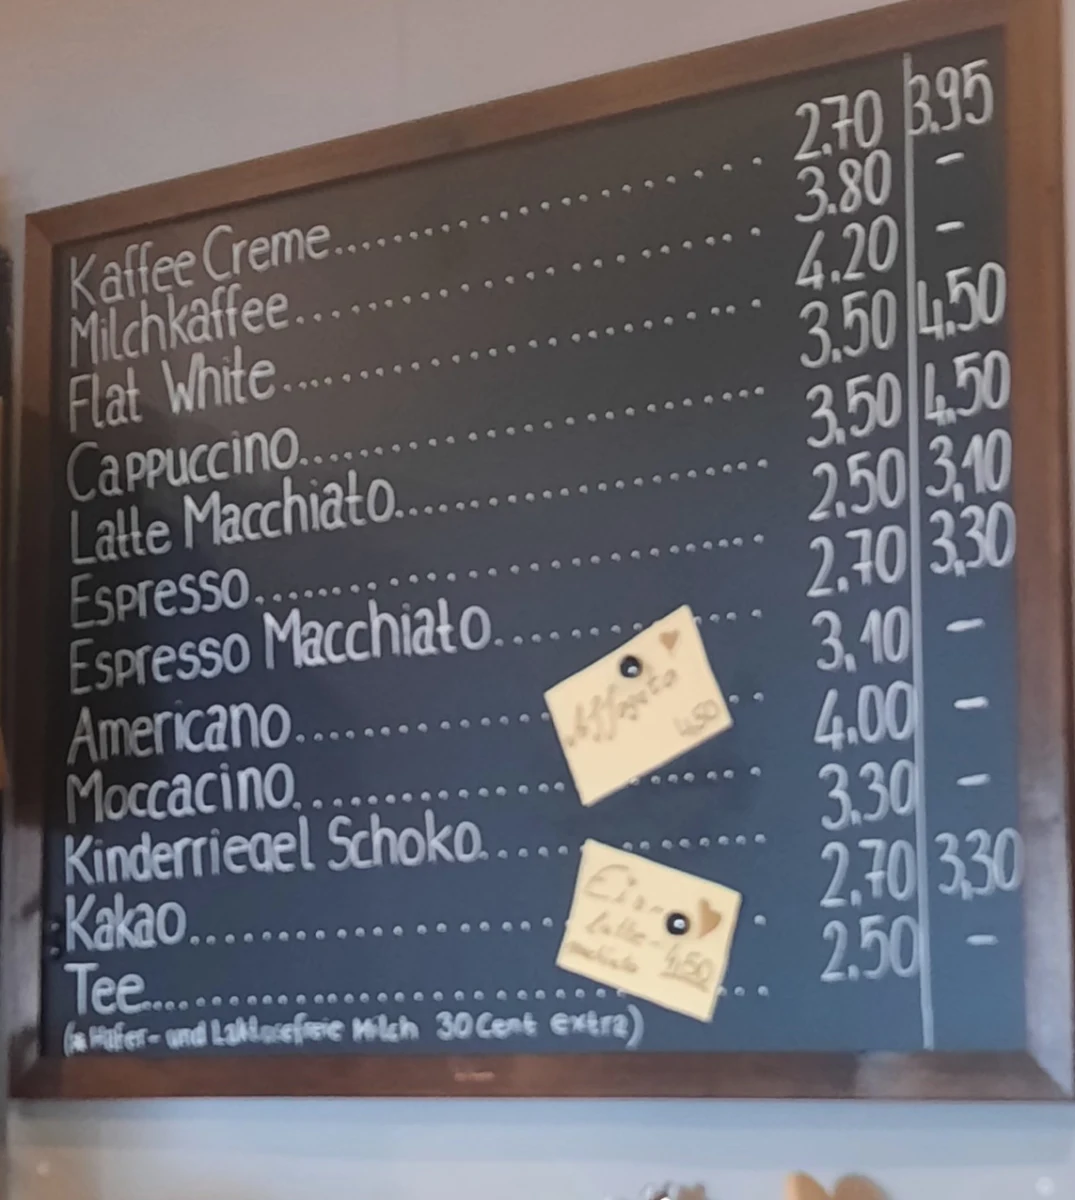 Kaffee Creme.................. 2.70 3.95
Milchkaffee.................. 3.80 -
Flat White.................. 4.20 -
Cappuccino.................. 3.50 4.50
Latte Macchiato.................. 3.50 4.50
Espresso.................. 2.50 3,10
Espresso Macchiato.................. 2.70 3,30
Americano.................. 3,10 -
Moccacino.................. 4.00 -
Kinderriegel Schoko.................. 3.30 -
Kakao.................. 2.70 3,30
Tee.................. 2.50 -
Hafer- und Laktosefreie Milch 30 Cent extra)
Affogato
4,50
Eis-
latte-
macchiato 4,50